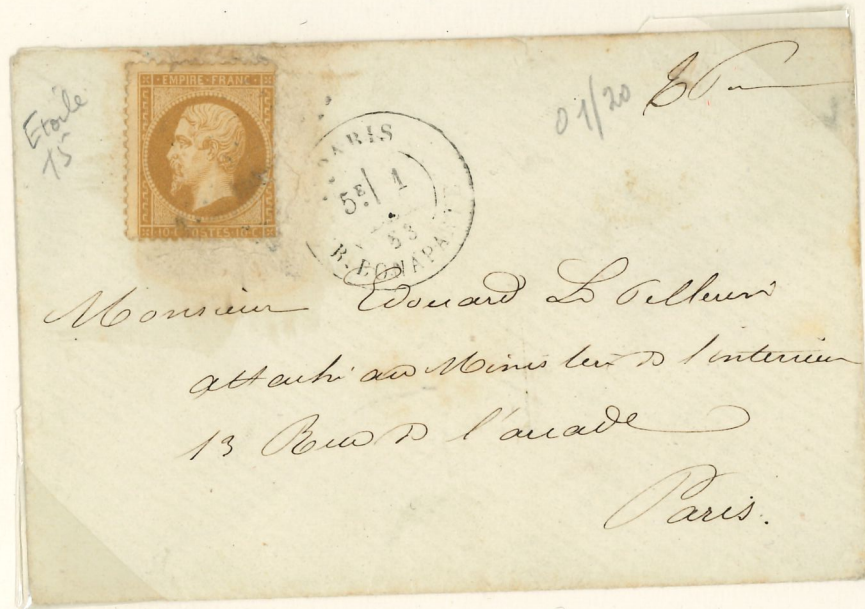 Etoile
15
EMPIRE FRANC
10 C POSTES 10 C
PARIS
5E 1
63
R. BONAPARTE
01/20
Monsieur Edouard Le Pelleurin
attaché au Ministère de l'interieur
13 Rue de l'arcade
Paris.